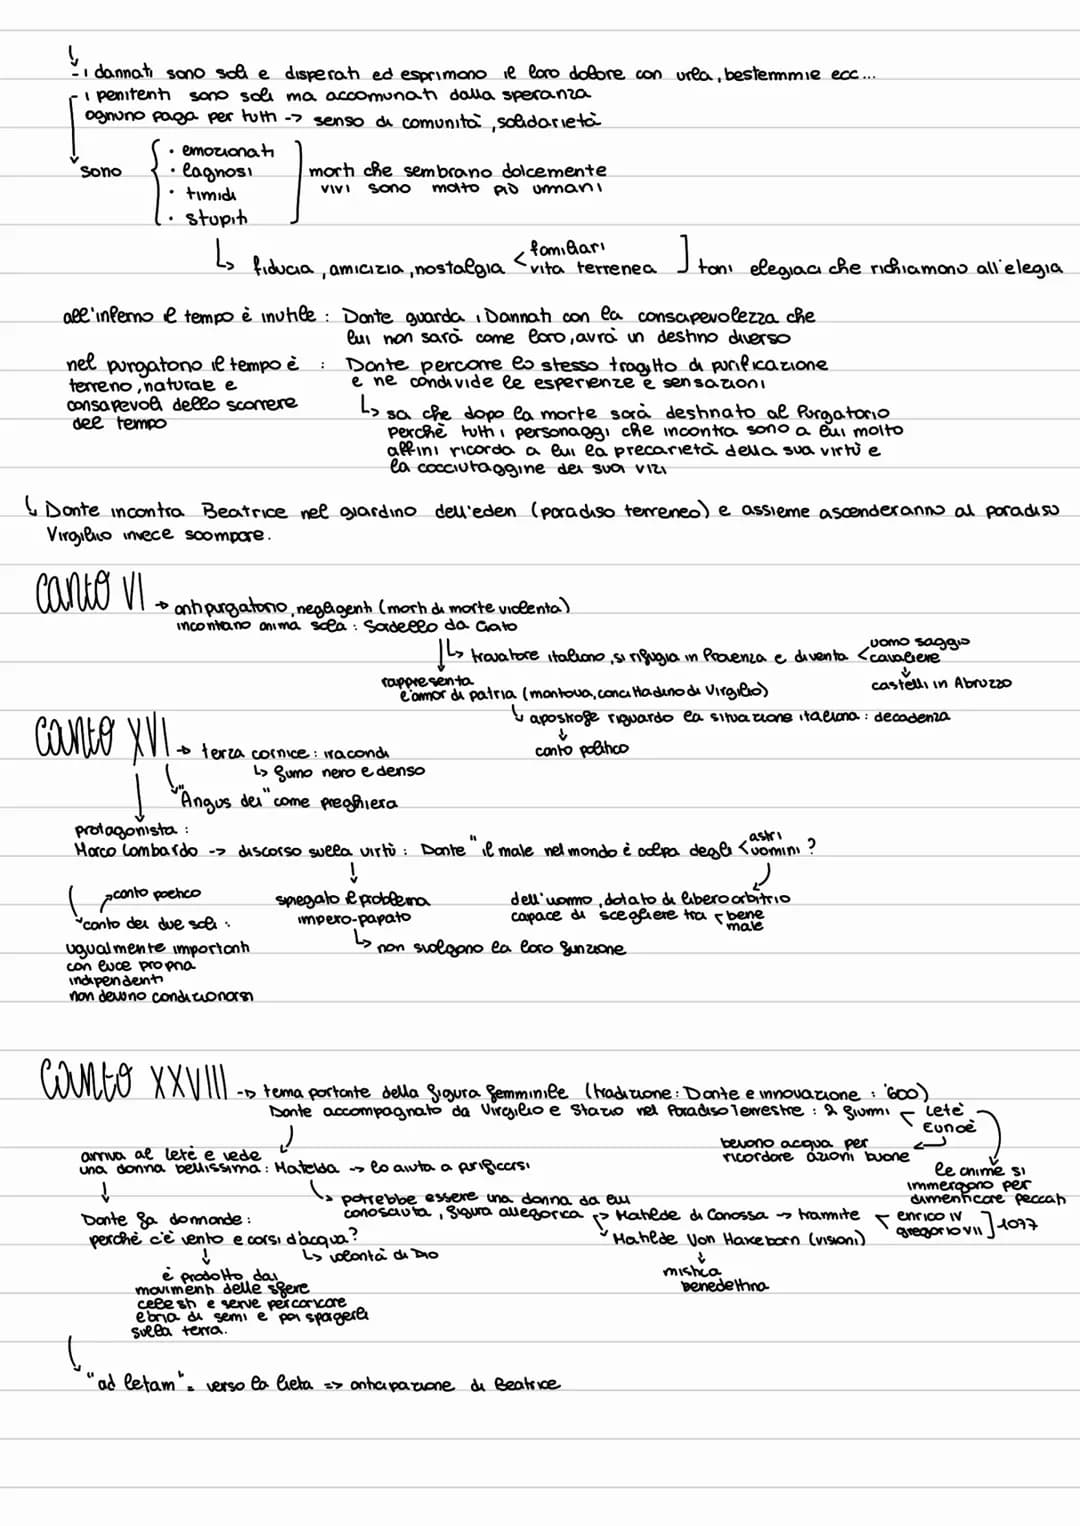 - i dannati sono soli e disperati ed esprimono il loro dolore con urla, bestemmie ecc...
- i penitenti sono soli ma accomunati dalla speranza
ognuno paga per tutti -> senso di comunità, solidarietà
sono
• emozionati
• lagnosi
• timidi
• stupiti
morti che sembrano dolcemente
vivi sono molto più umani
fiducia, amicizia, nostalgia < familiari
vita terrenea
] toni elegiaci che richiamano all'elegia
all'inferno il tempo è inutile : Dante guarda i Dannati con la consapevolezza che
lui non sarà come loro, avrà un destino diverso
nel purgatorio il tempo è : Dante percorre lo stesso tragitto di purificazione
terreno, naturale e
e ne condivide le esperienze e sensazioni
consapevoli dello scorrere
del tempo
sa che dopo la morte sarà destinato al Purgatorio
perchè tutti i personaggi che incontra sono a lui molto
affini ricorda a lui la precarietà della sua virtù e
la cocciutaggine dei suoi vizi
Dante incontra Beatrice nel giardino dell'eden (paradiso terreneo) e assieme ascenderanno al paradiso
Virgilio invece scompare.
Canto VI -> antipurgatorio, negligenti (morti di morte violenta)
incontrano anima sola : Sordello da Goito
trovatore italiano, si rifugia in Provenza e diventa < uomo saggio
cavaliere
castelli in Abruzzo
rappresenta
l'amor di patria (mantova, concittadino di Virgilio)
apostrofe riguardo la situazione italiana : decadenza
canto politico
Canto XVI -> terza cornice : iracondi
fumo nero e denso
"Angus dei" come preghiera
protagonista :
Marco Lombardo -> discorso sulla virtù : Dante "il male nel mondo è colpa degli < astri
uomini ?
canto poetico
canto dei due soli :
ugualmente importanti
con luce propria
indipendenti
non devono condizionarsi
spiegato il problema
impero-papato
non svolgono la loro funzione
dell'uomo, dotato di libero orbitrio
capace di scegliere tra < bene
male
Canto XXVIII -> tema portante della figura femminile (tradizione : Dante e innovazione : '600)
Dante accompagnato da Virgilio e Stazio nel Paradiso Terrestre : 2 fiumi < Letè
Eunoè
bevono acqua per
ricordare azioni buone
le anime si
immergono per
dimenticare peccati
arriva al letè e vede
una donna bellissima : Matelda -> lo aiuta a purificarsi
potrebbe essere una donna da lui
conosciuta, figura allegorica
Matilde di Canossa -> tramite < enrico IV
gregorio VII ] 1077
Matilde Von Hakeborn (visioni)
mistica
benedettina
Dante fa domande :
perchè c'è vento e corsi d'acqua?
volontà di Dio
è prodotto dai
movimenti delle sfere
celesti e serve per caricare
l'aria di semi e poi spargerli
sulla terra.
"ad letam" = verso la lieta => anticipazione di Beatrice